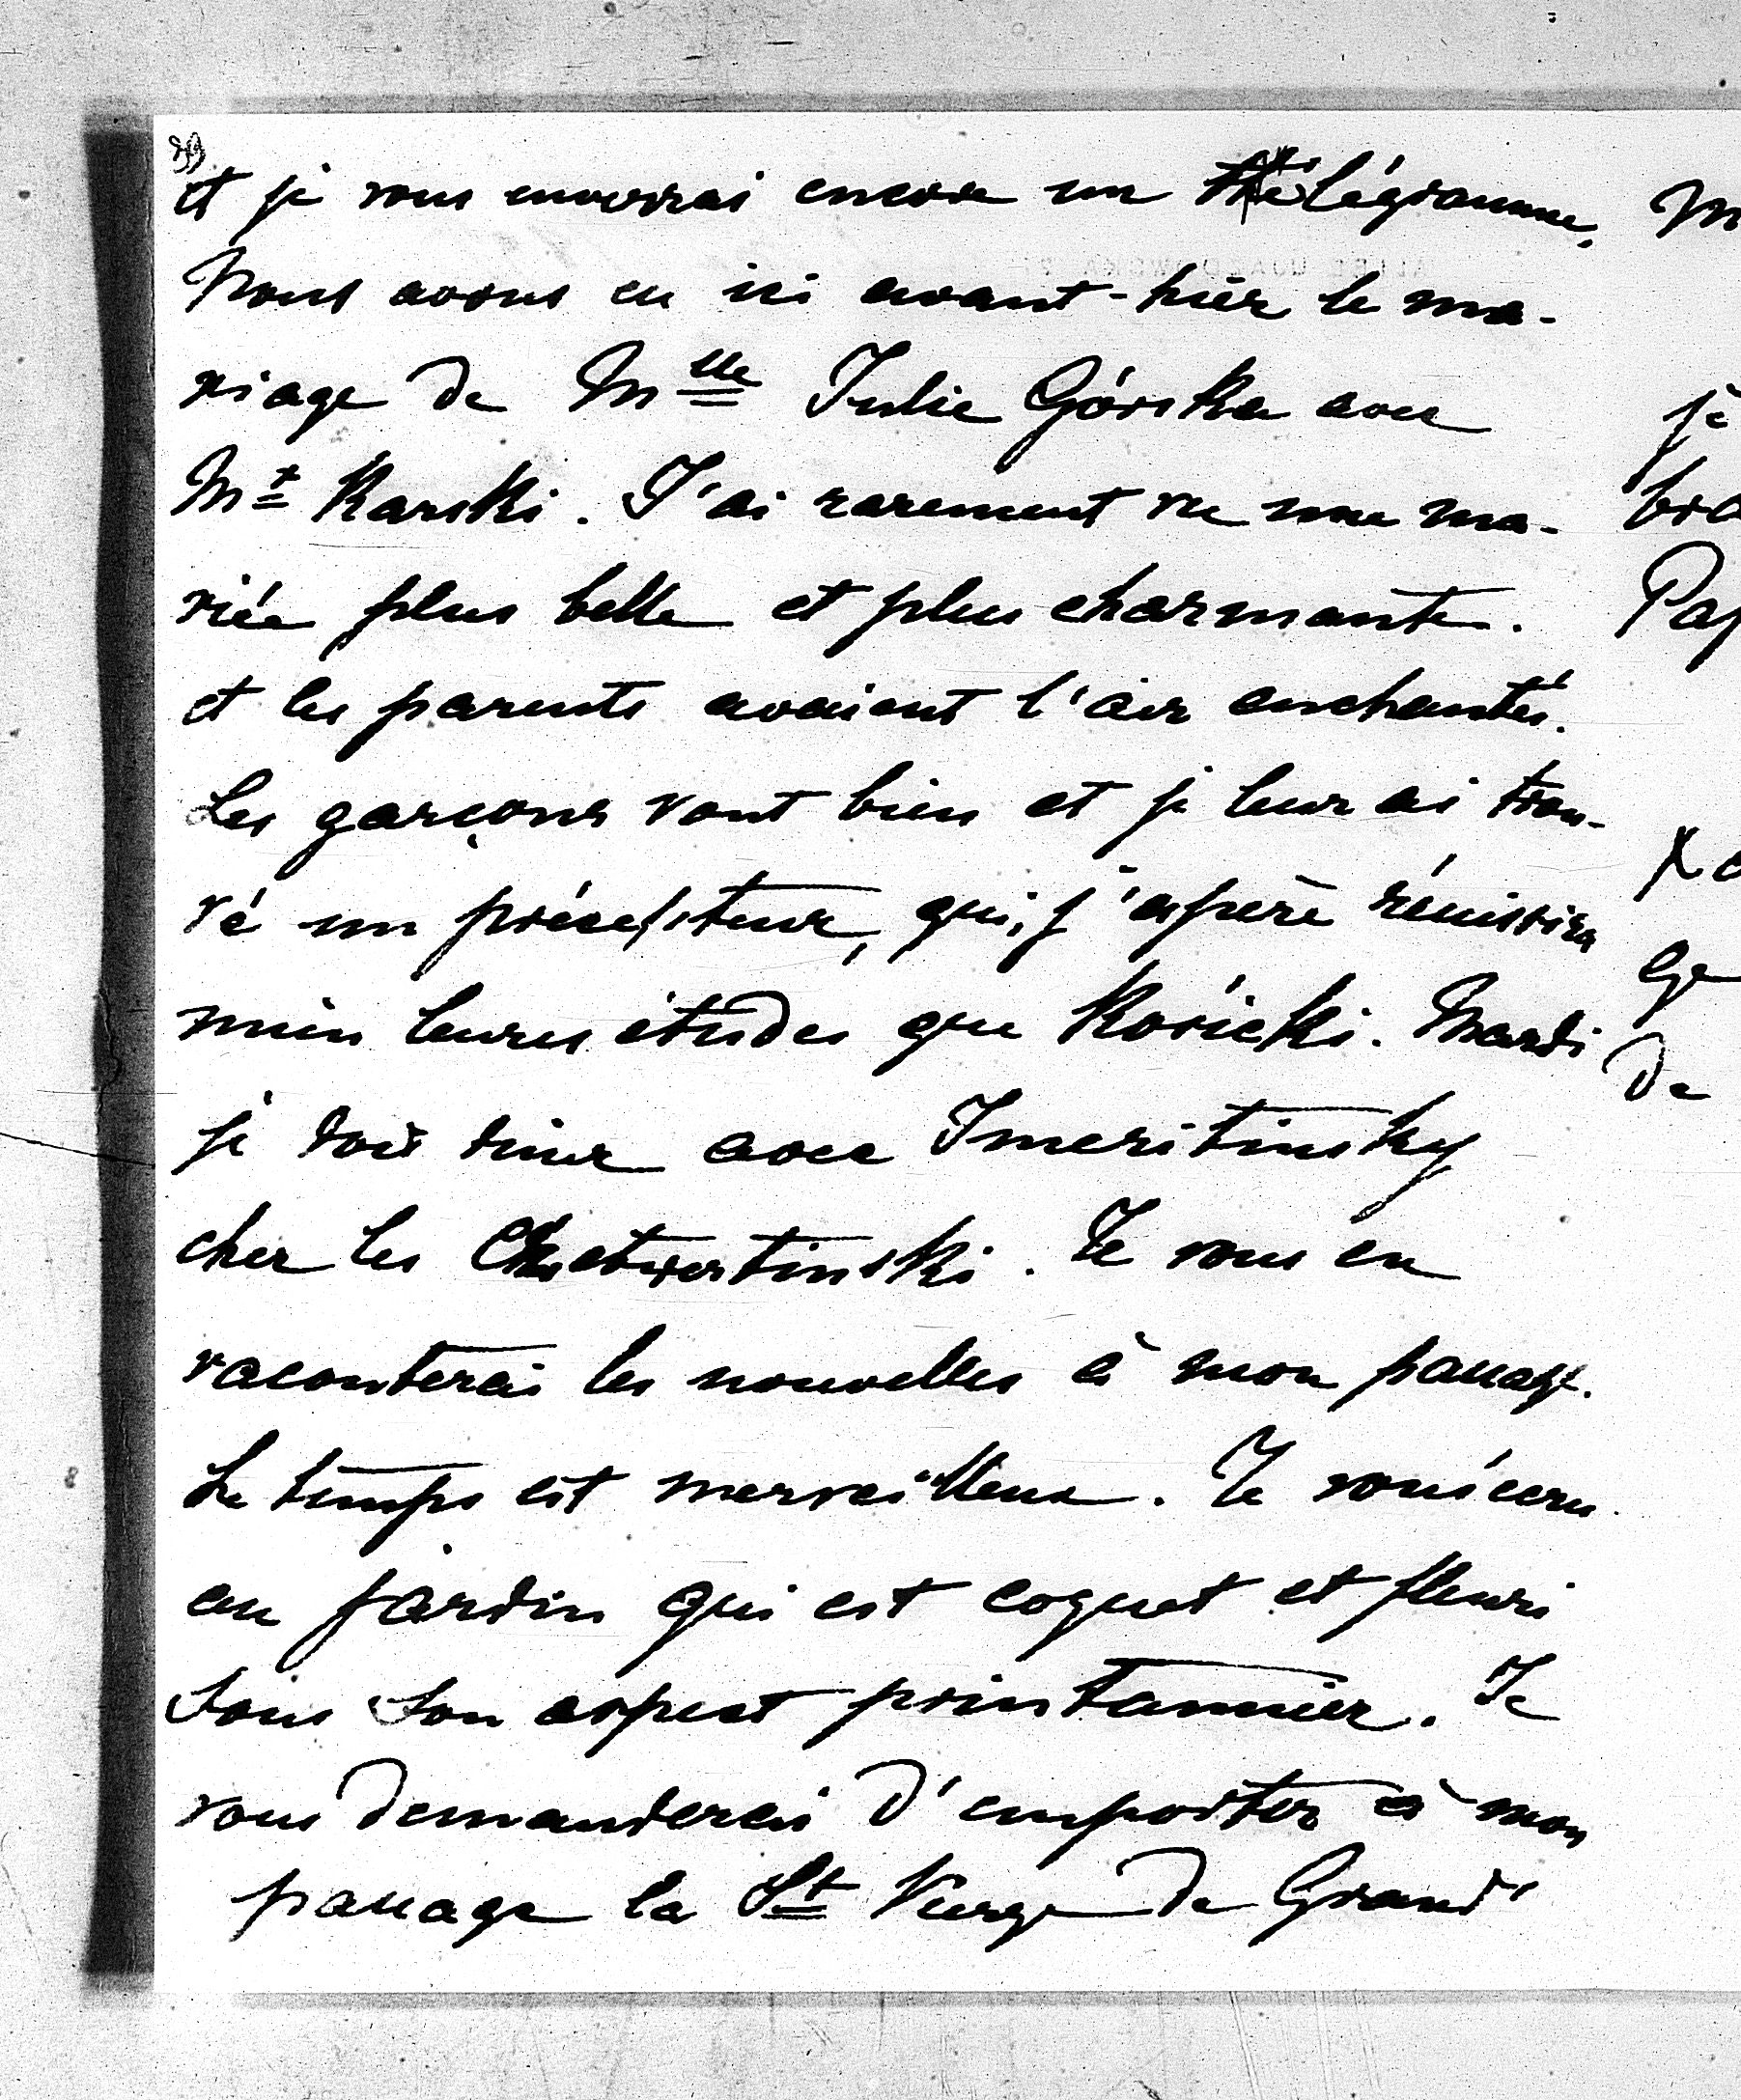 et je vous enverrai encore un télégramme.
Nous avons eu ici avant-hier le ma-
riage de Mlle Julie Górska avec
Mr Karski. J'ai rarement vu une ma-
riée plus belle et plus charmante.
et les parents avaient l'air enchantés.
Les garçons vont bien et je leur ai trou-
vé un précepteur, qui, j'espère réussira
mieu leures études que Kosicki. Mardi
je dois diner avec Imeritinsky
chez les Chetvertinski. Je vous en
raconterai les nouvelles à mon passage.
Le temps est merveilleux. Je vous écris
au jardin qui est coquet et fleuri
sous son aspect printannier. Je
vous demanderai d'emporter à mon
passage la St Vierge de Grand'
M
je
bra
Pap
de